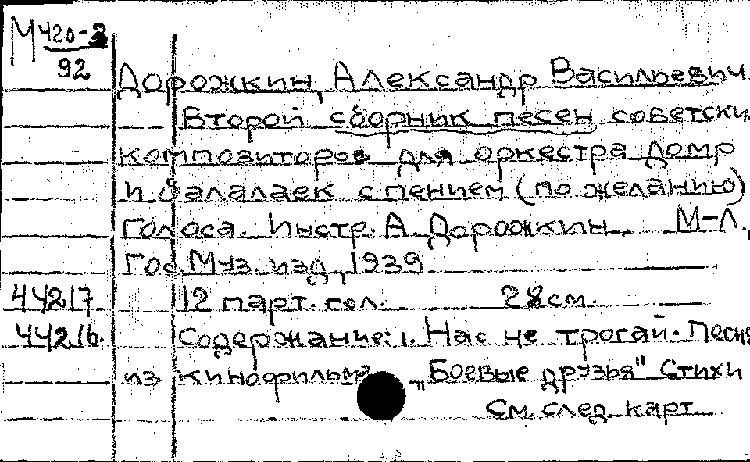 М420-2
92
Дорожкин, Александр Васильевич.
Второй сборник песен советски
композиторов для оркестра домр
и балалаек с пением (по желанию)
голоса. Инстр. А. Дорожкин. М-Л.,
Гос. Муз. изд., 1939
44217 12 парт. гол. 28см.
44216. Содержание: 1. Нас не трогай. Песня
из кинофильма „Боевые друзья" Стихи
См. след. карт.